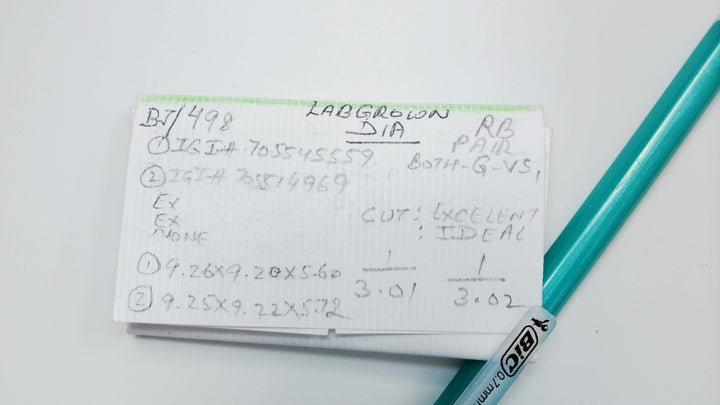 LABGROWN
DIA
BJ/498
RB
PAIR
① IGI# 705545559
BOTH-G-VS1
② IGI#
EX
EX
NONE
CUT: EXCELENT
: IDEAL
① 9.26x9.20x5.60
1
3.01
1
3.02
② 9.25x9.22x5.72
BIC
0.7mm